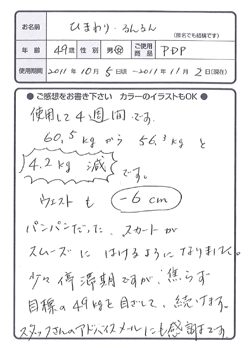 お名前
ひまわり・るんるん
(匿名でも結構です)
年齢 49歳 性別 男・女 ご使用商品 PDP
使用期間 2011年10月5日頃〜2011年11月2日(現在)
●ご感想をお書き下さい カラーのイラストもOK●
使用して4週間です。
60.5kgから 56.3kgと
4.2kg 減 です。
ウェストも -6cm
パンパンだった、スカートが
スムーズに はけるようになりました。
少々停滞期ですが、焦らず
目標の49kgを目ざして、続けます。
スタッフさんのアドバイスメールにも感謝です